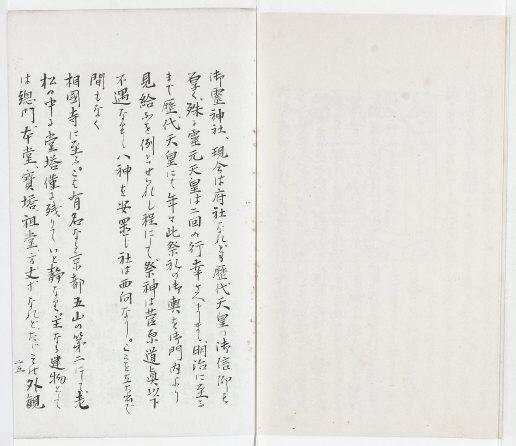 御靈神社、現今は府社なれども歴代天皇の御信仰も
厚く殊に靈元天皇は二回の行幸さへありまして明治に至る
まで歴代天皇にも年々此祭礼の御輿を御門内より
見給ふを例とせられし程にして祭神は菅原道真以下
不遇なりし八神を安置し社は西向なり。こゝを立出で
間もなく
相國寺に至る。こも有名なる京都五山の第二にて老
松の中に堂塔僅に残りていと静なり主なる建物とて
は總門本堂、寶塔祖堂方丈などなれどたゞその外観